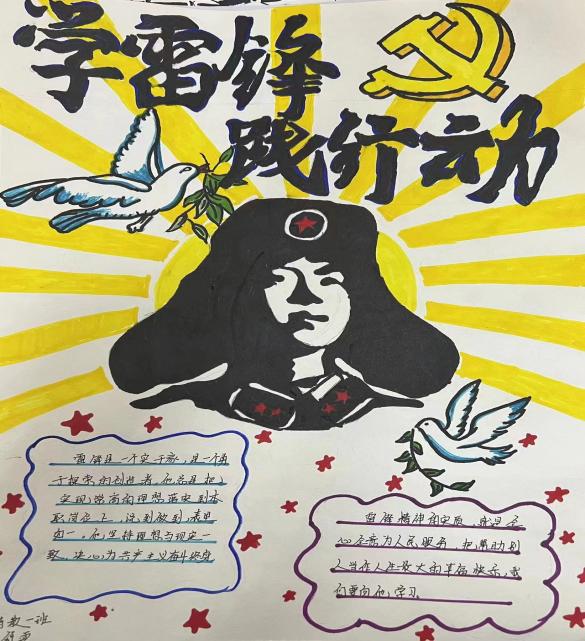 学雷锋
践行动
雷锋是一个实干家,是一个勇
于探索的创造者,他总是把
实现崇高的理想落实到本
职岗位上,说到做到,表里
如一,他坚持理想与现实一
致,决心为共产主义奋斗终身
雷锋精神的实质,就是全
心全意为人民服务,把帮助别
人当作人生最大的幸福快乐,我
们要向他学习
教一班